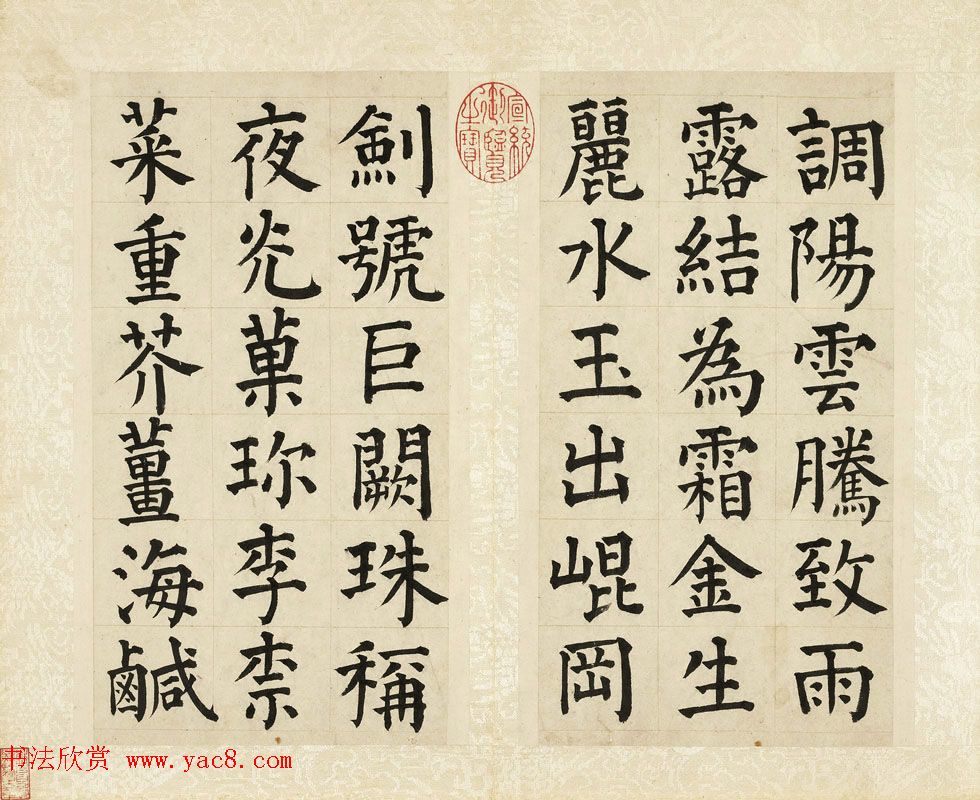 調陽雲騰致雨
露結為霜金生
麗水玉出崐岡
劎號巨闕珠稱
夜光菓珎李柰
菜重芥薑海鹹
宣統御覽之寶
书法欣赏 www.yac8.com